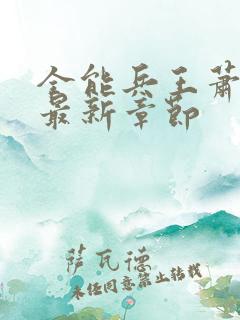 全能兵王蕭
最新章節
萨瓦德
未经同意禁止转载